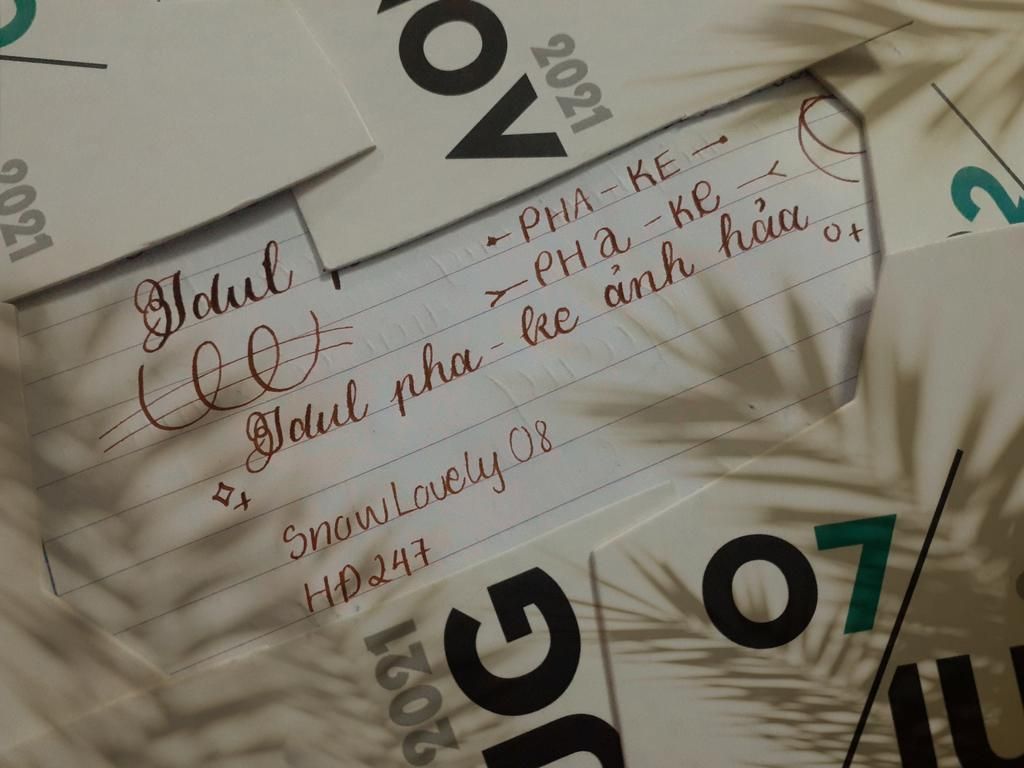 NOV
2021
2021
PHA-KE
PHA-KE
Idul
Idul pha-ke ảnh hỏa
SnowLovely 08
HĐ247
2
07
AUG
2021